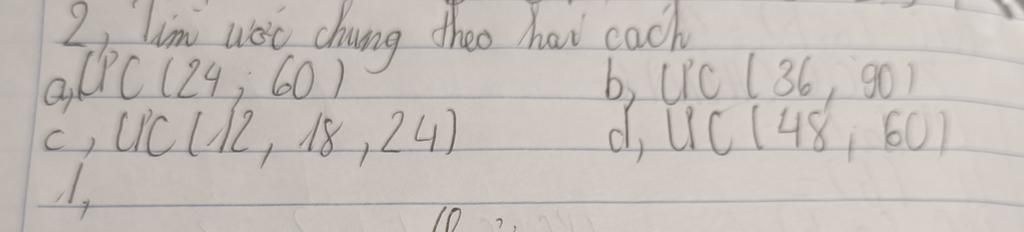 2, Tìm ước chung theo hai cách
a, ƯC (24; 60) b, ƯC (36, 90)
c, ƯC (12, 18, 24) d, ƯC (48; 60)
1,